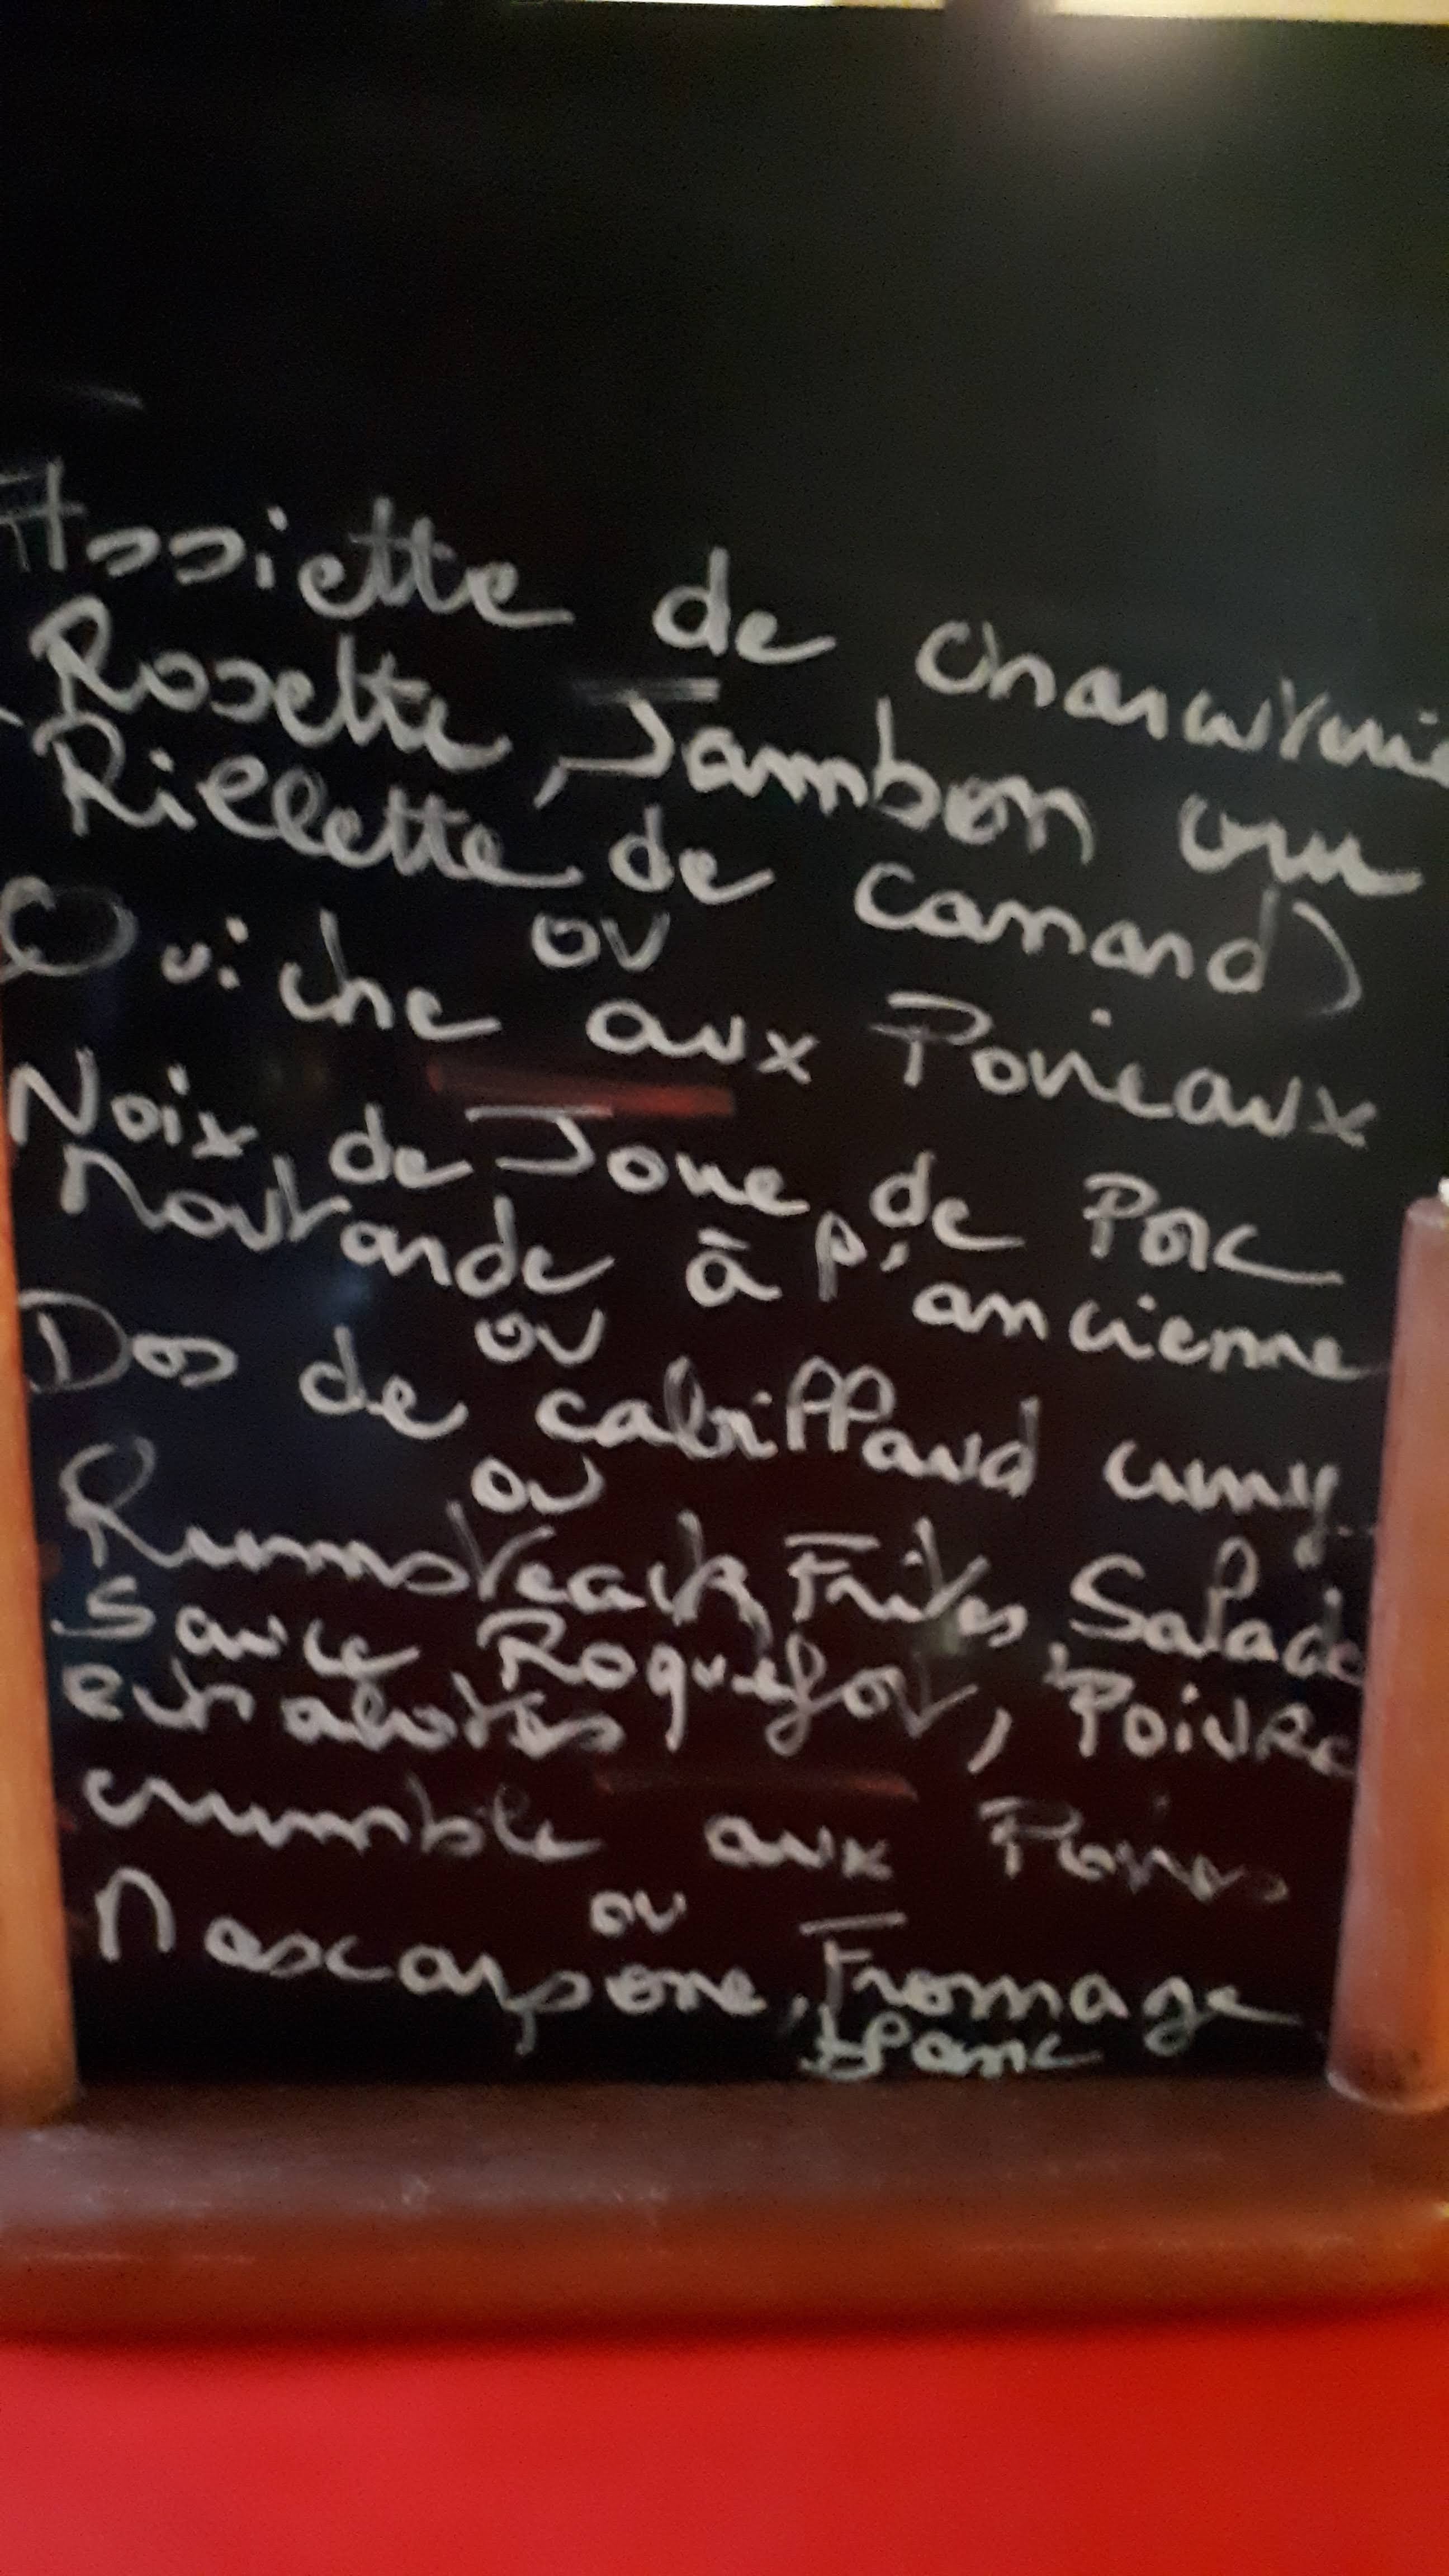 Assiette de charcuterie
(Rosette, Jambon cru
Rillette de canard)
ou
Quiche aux Poireaux
Noix de Joue de Porc
Moutarde à l'ancienne
ou
Dos de cabillaud curry
ou
Rumsteack Frites, Salade
Sauce Roquefort, Poivre
echalotes
crumble aux Poires
ou
Mascarpone, Fromage
blanc